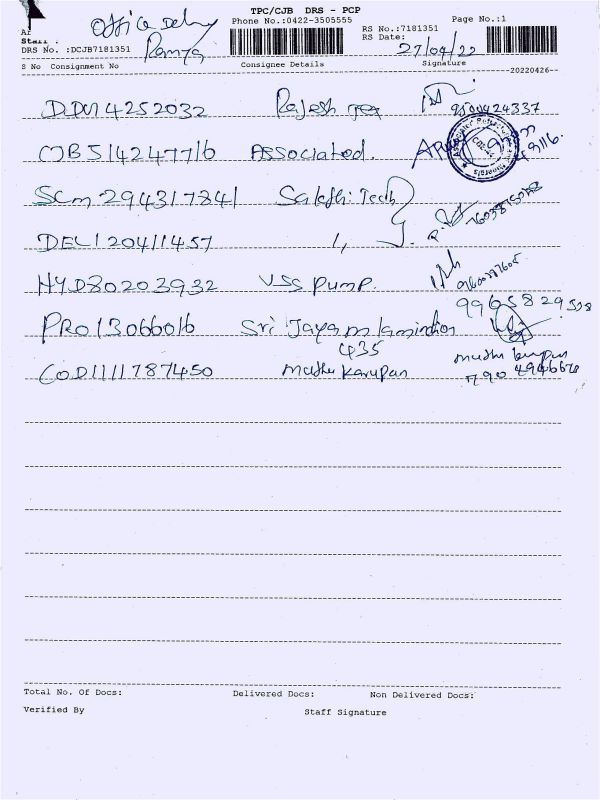 TPC/CJB DRS - PCP
Office
Phone No.:0422-3505555
Page No.:1
RS No.:7181351
RS Date:
27/04/22
DRS No. :DCJB7181351
Ramya
S No Consignment No Consignee Details Signature
20220426
DDM4252032 Rajesh 9500424337
CJB514247716 Associated.
SCM294317841 Sakthi Tech
DEL120411457 ,,
HYD80203932 VSS pump.
9965829508
PRO13066016 Sri Jayam lamination
435
COD1111787450 muthu karupan muthu karupan
Total No. Of Docs: Delivered Docs: Non Delivered Docs:
Verified By Staff Signature